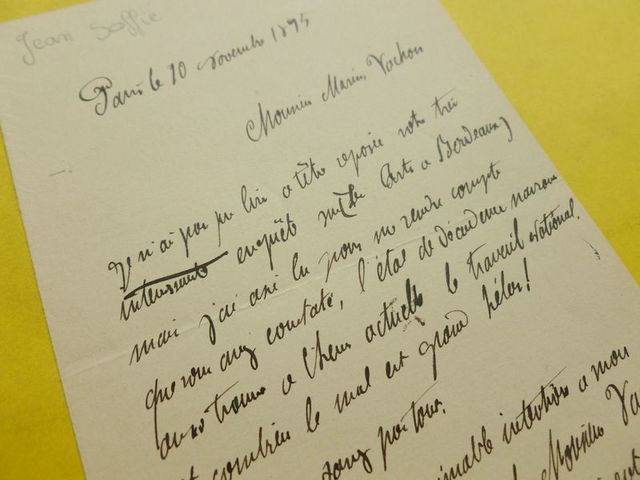 Jean Baffie
Paris le 10 novembre 1895
Monsieur Marius Vachon
Je n'ai pas pu lire a tête reposée votre très
intéressante enquête sur les Arts a Bordeaux
mais j'ai assez lu pour me rendre compte
que vous avez constaté, l'état de décadence navrant
ou se trouve a l'heure actuelle le travail National.
et combien le mal est grand hélas!
partout.
aimable intention a mon
Monsieur Va